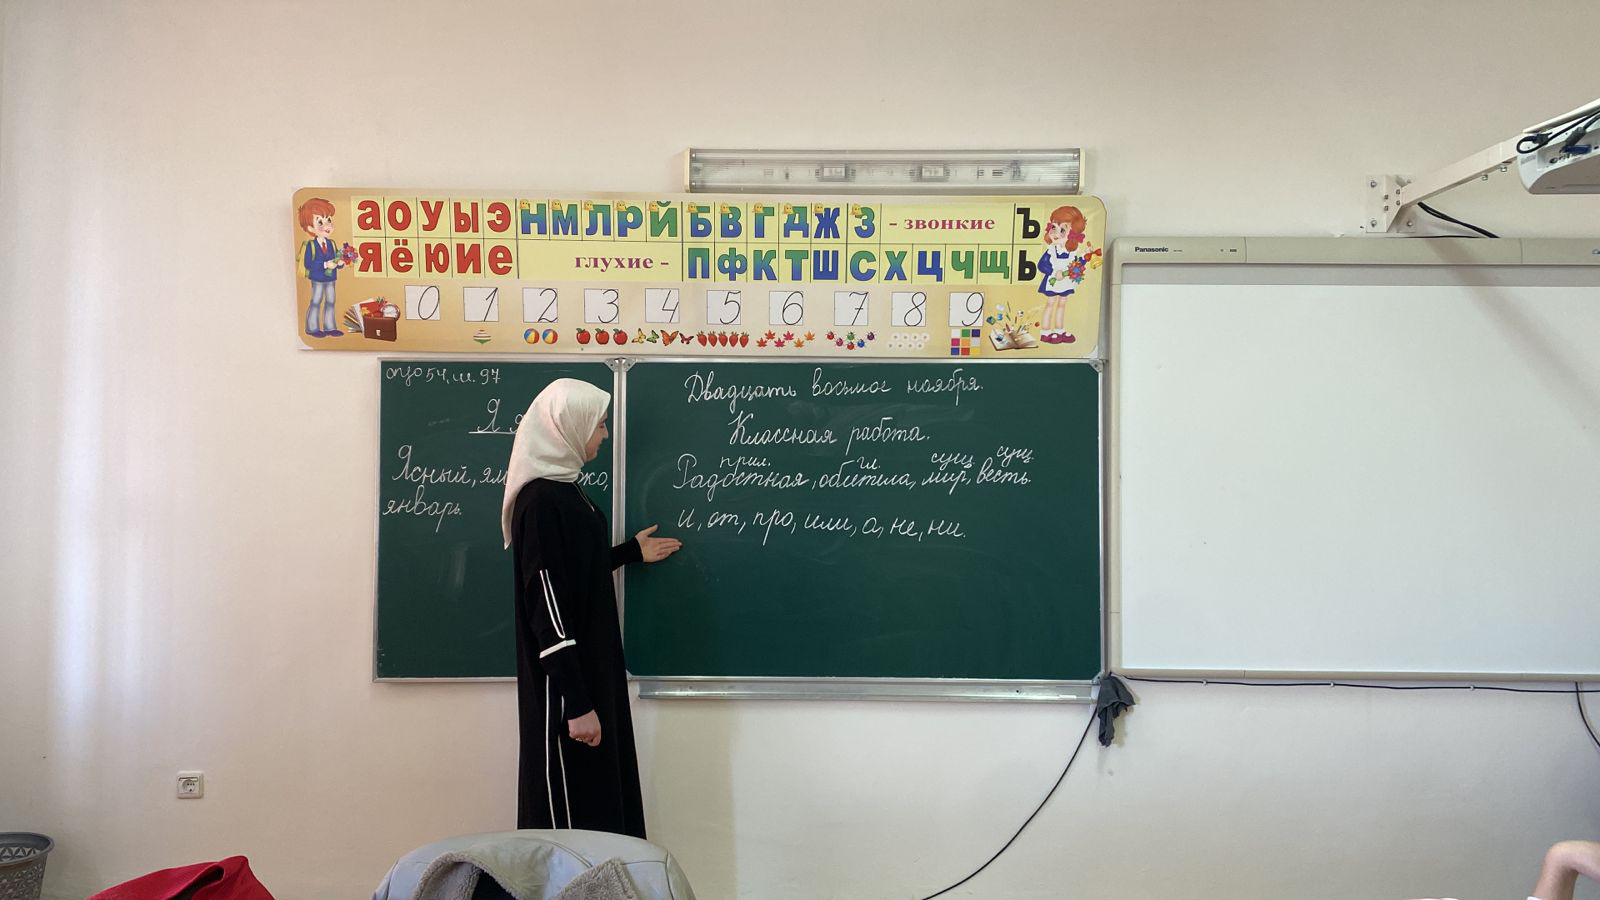 АОУЫЭНМЛРЙБВГДЖЗ - звонкие Ъ
ЯЁЮИЕ глухие - ПФКТШСХЦЧЩЬ
0 1 2 3 4 5 6 7 8 9
Panasonic
стр 54, ш. 97
Я я
Ясный,
январь.
Двадцать восьмое ноября.
Классная работа.
прил. гл. сущ. сущ.
Радостная, обитела, мир, весть.
и, от, про, или, а, не, ни.